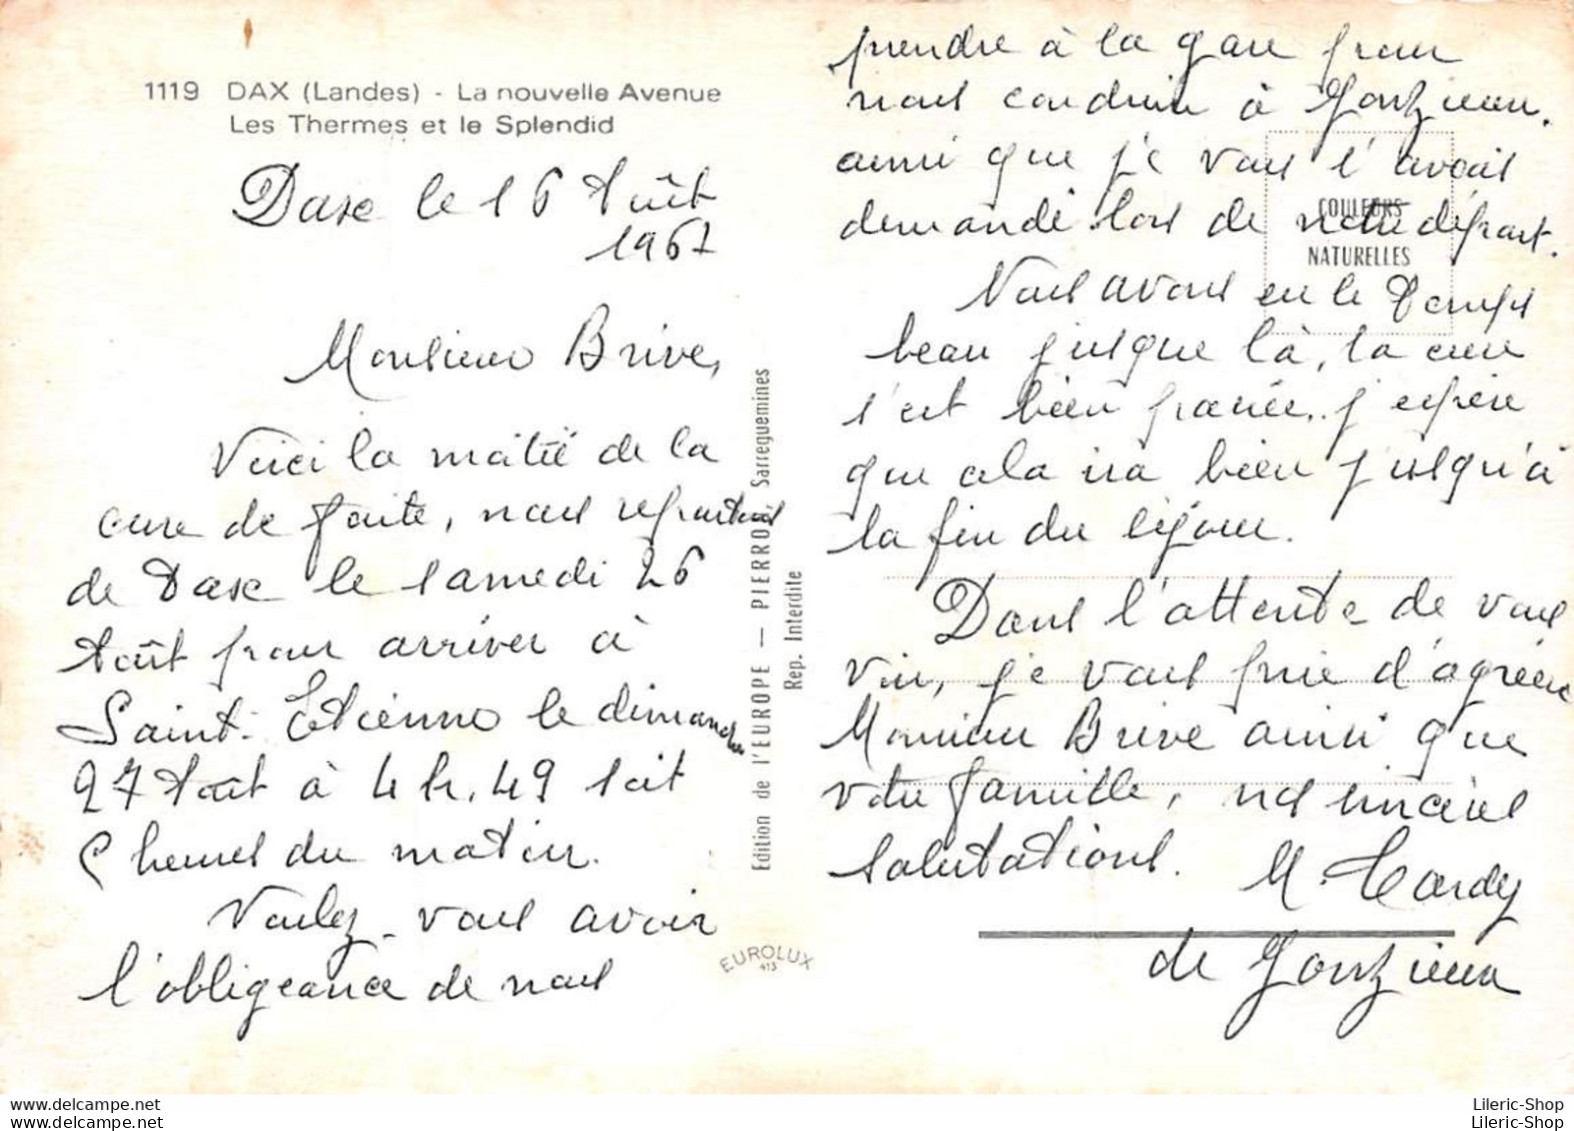 1119 DAX (Landes) - La nouvelle Avenue
Les Thermes et le Splendid
Dax le 16 Août
1967
Monsieur Brive,
Voici la moitié de la
cure de faite, nous repartons
de Dax le samedi 26
Août pour arriver à
Saint-Etienne le dimanche
27 Août à 4 h. 49 soit
5 heures du matin.
Voulez-vous avoir
l'obligeance de nous
EUROLUX
Edition de l'EUROPE — PIERRON, Sarreguemines
Rep. Interdite
prendre à la gare pour
nous conduire à
ainsi que je vous l'avais
demandé lors de notre départ.
COULEURS
NATURELLES
Nous avons eu le temps
beau jusque là, la cure
s'est bien passée, j'espère
que cela ira bien jusqu'à
la fin du séjour.
Dans l'attente de vous
voir, je vous prie d'agréer
Monsieur Brive ainsi que
votre famille, nos sincères
salutations.
M. Hardy
de
Lileric-Shop
Lileric-Shop
Lileric-Shop
Lileric-Shop